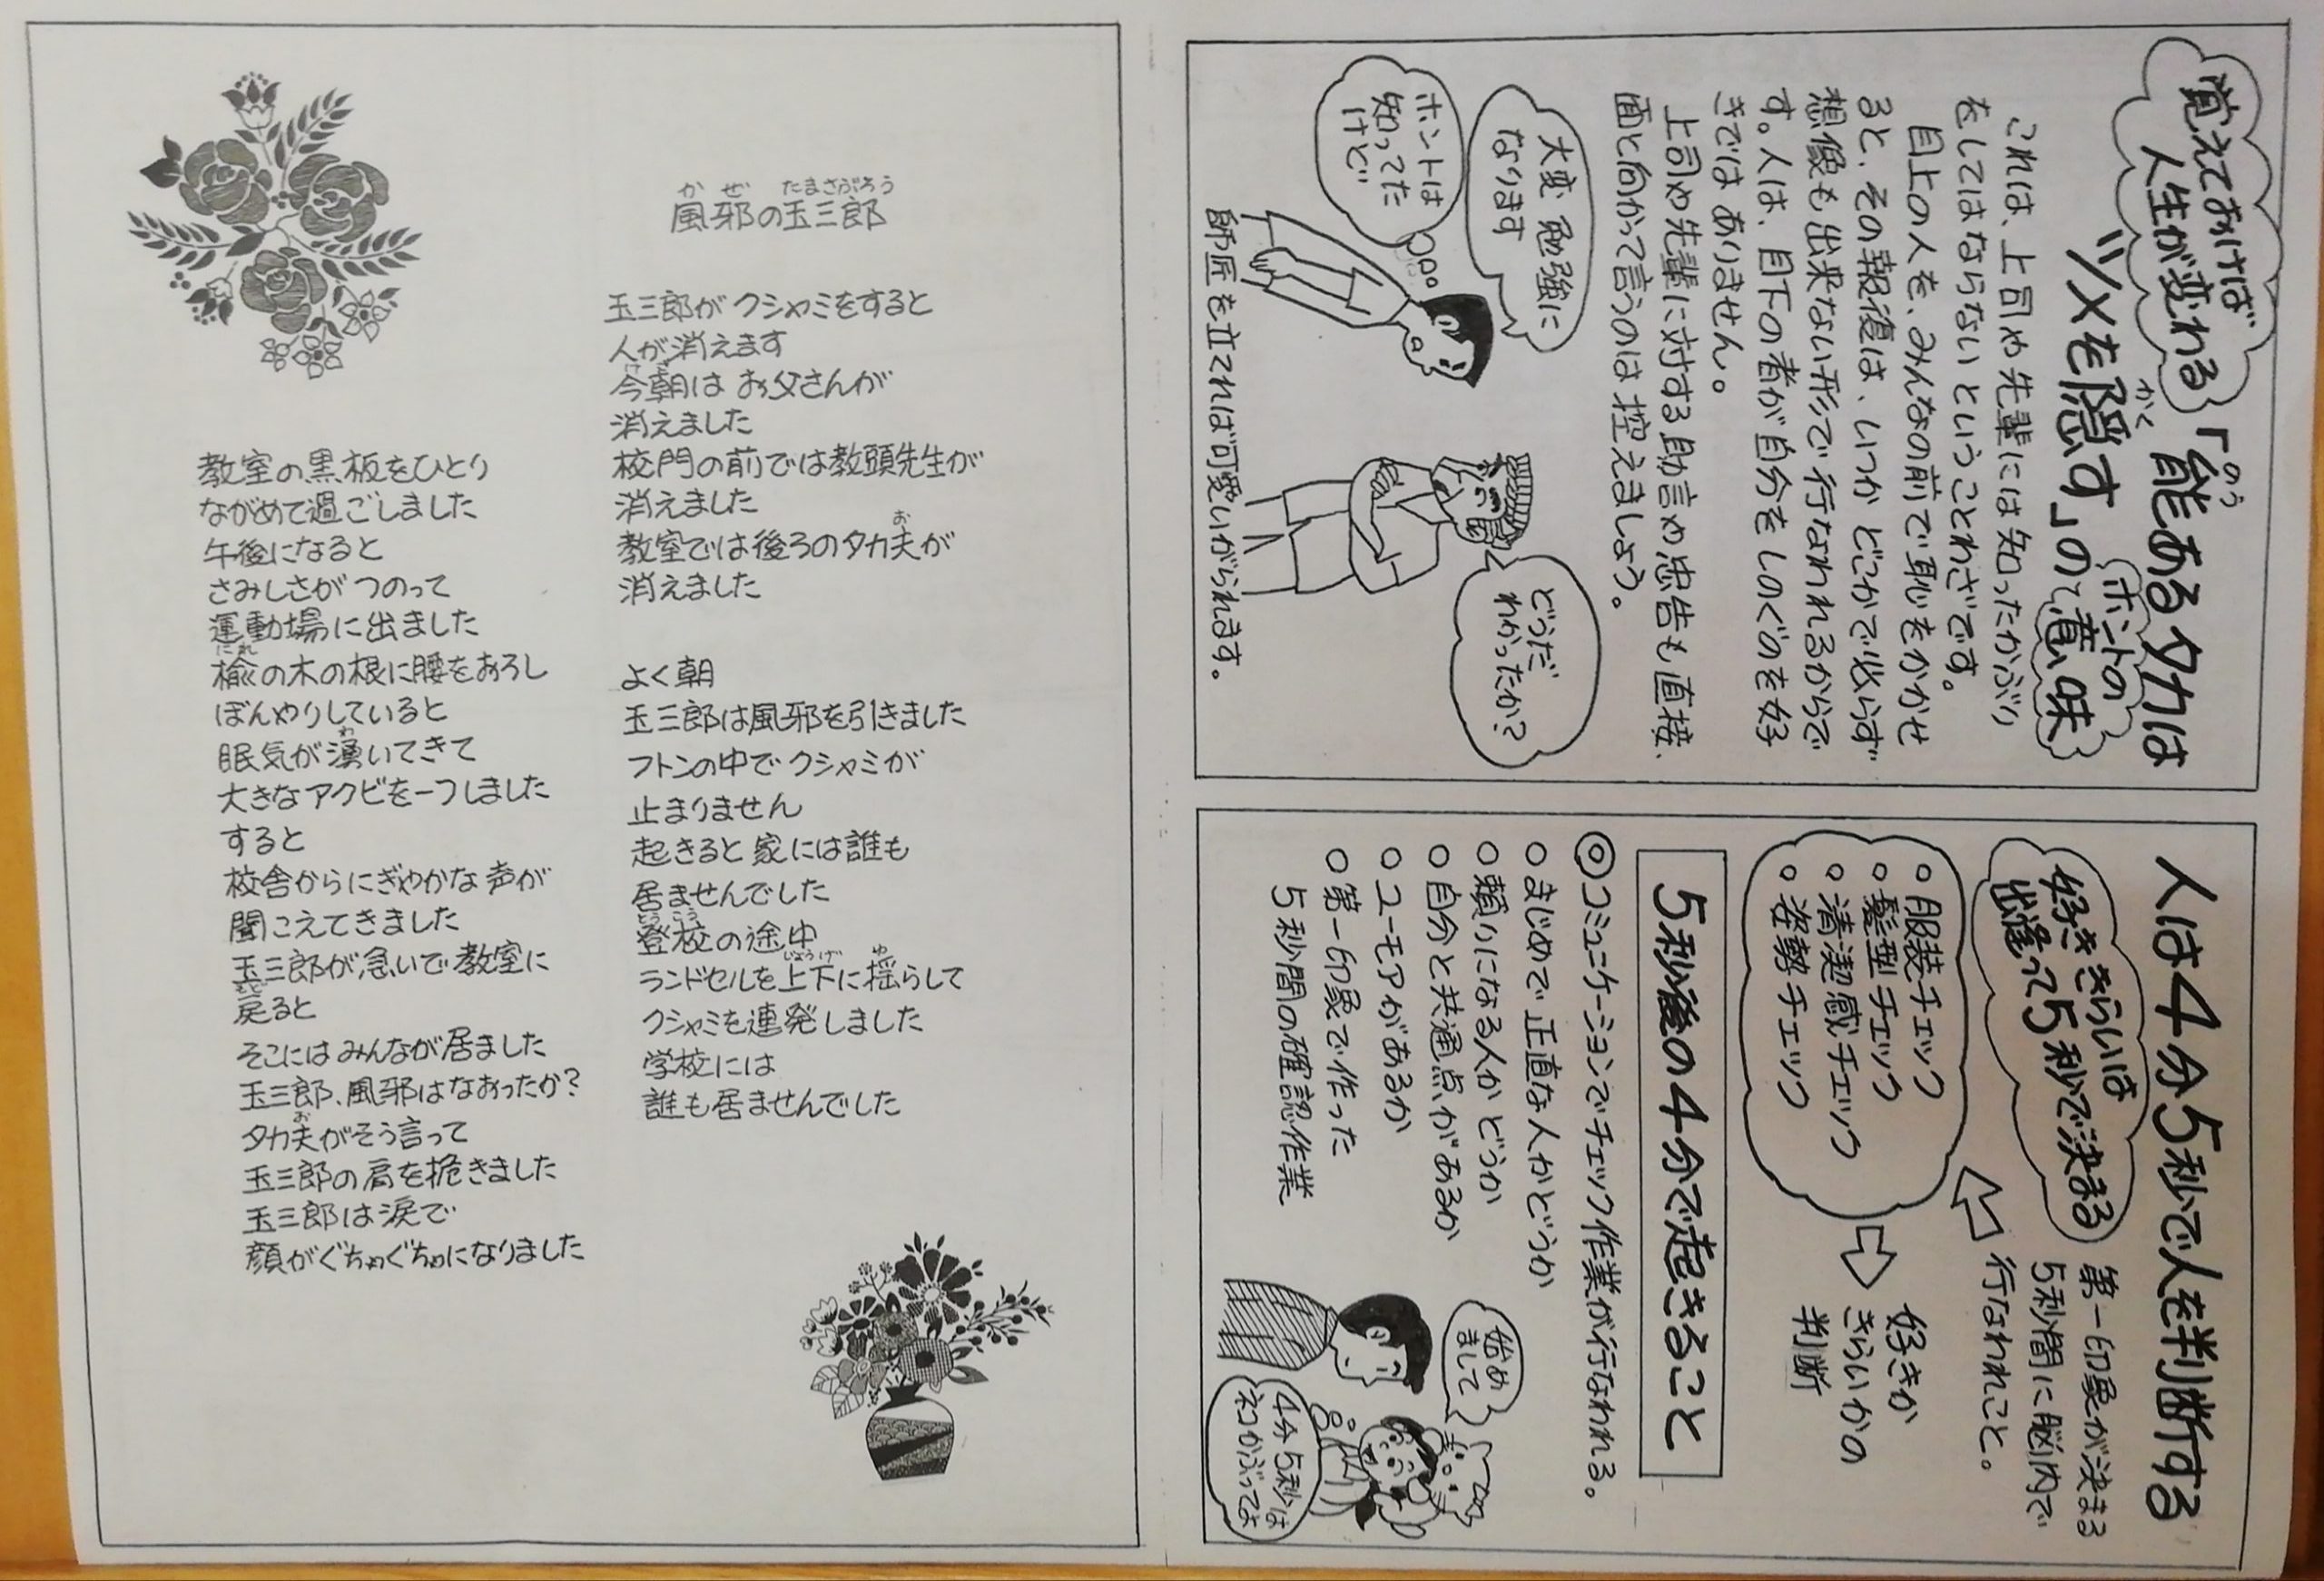 風邪の玉三郎
かぜ
たまさぶろう
玉三郎がクシャミをすると
人が消えます
今朝はお父さんが
消えました
校門の前では教頭先生が
消えました
教室では後ろのタカ夫が
お
消えました
よく朝
玉三郎は風邪を引きました
フトンの中でクシャミが
止まりません
起きると家には誰も
居ませんでした
登校の途中
とうこう
ランドセルを上下に揺らして
じょうげ
ゆ
クシャミを連発しました
学校には
誰も居ませんでした
教室の黒板をひとり
ながめて過ごしました
午後になると
さみしさがつのって
運動場に出ました
楡の木の根に腰をおろし
にれ
ぼんやりしていると
眠気が湧いてきて
わ
大きなアクビを一つしました
すると
校舎からにぎやかな声が
聞こえてきました
玉三郎が急いで教室に
戻ると
もど
そこにはみんなが居ました
玉三郎、風邪はなおったか?
タカ夫がそう言って
お
玉三郎の肩を
きました
玉三郎は涙で
顔がぐちゃぐちゃになりました
覚えておけば
人生が変わる
「能ある夕カは
のう
ツメを隠す」の、
かく
ホントの
意味
これは、上司や先輩には知ったかぶり
をしてはならないということわざです。
目上の人を、みんなの前で恥をかかせ
ると、その報復は、いつかどこかで必らず
想像も出来ない形で行なわれるからで
す。人は、目下の者が自分をしのぐのを好
きではありません。
上司や先輩に対する助言や忠告も直接、
面と向かって言うのは控えましょう。
大変勉強に
なります
ホントは
知ってた
けど
どうだ
わかったか?
師匠を立てれば可愛いがられます。
人は4分5秒で人を判断する
好ききらいは
出逢って5秒で決まる
第一印象が決まる
5秒間に脳内で
行なわれること。
○服装チェック
○髪型チェック
○清潔感チェック
○姿勢チェック
好きか
きらいかの
判断
5秒後の4分で起きること
◎コミュニケーションでチェック作業が行なわれる。
○まじめで正直な人かどうか
○頼りになる人かどうか
○自分と共通点があるか
○ユーモアがあるか
○第一印象で作った
5秒間の確認作業
始め
まして
4分5秒は
ネコかぶってよ